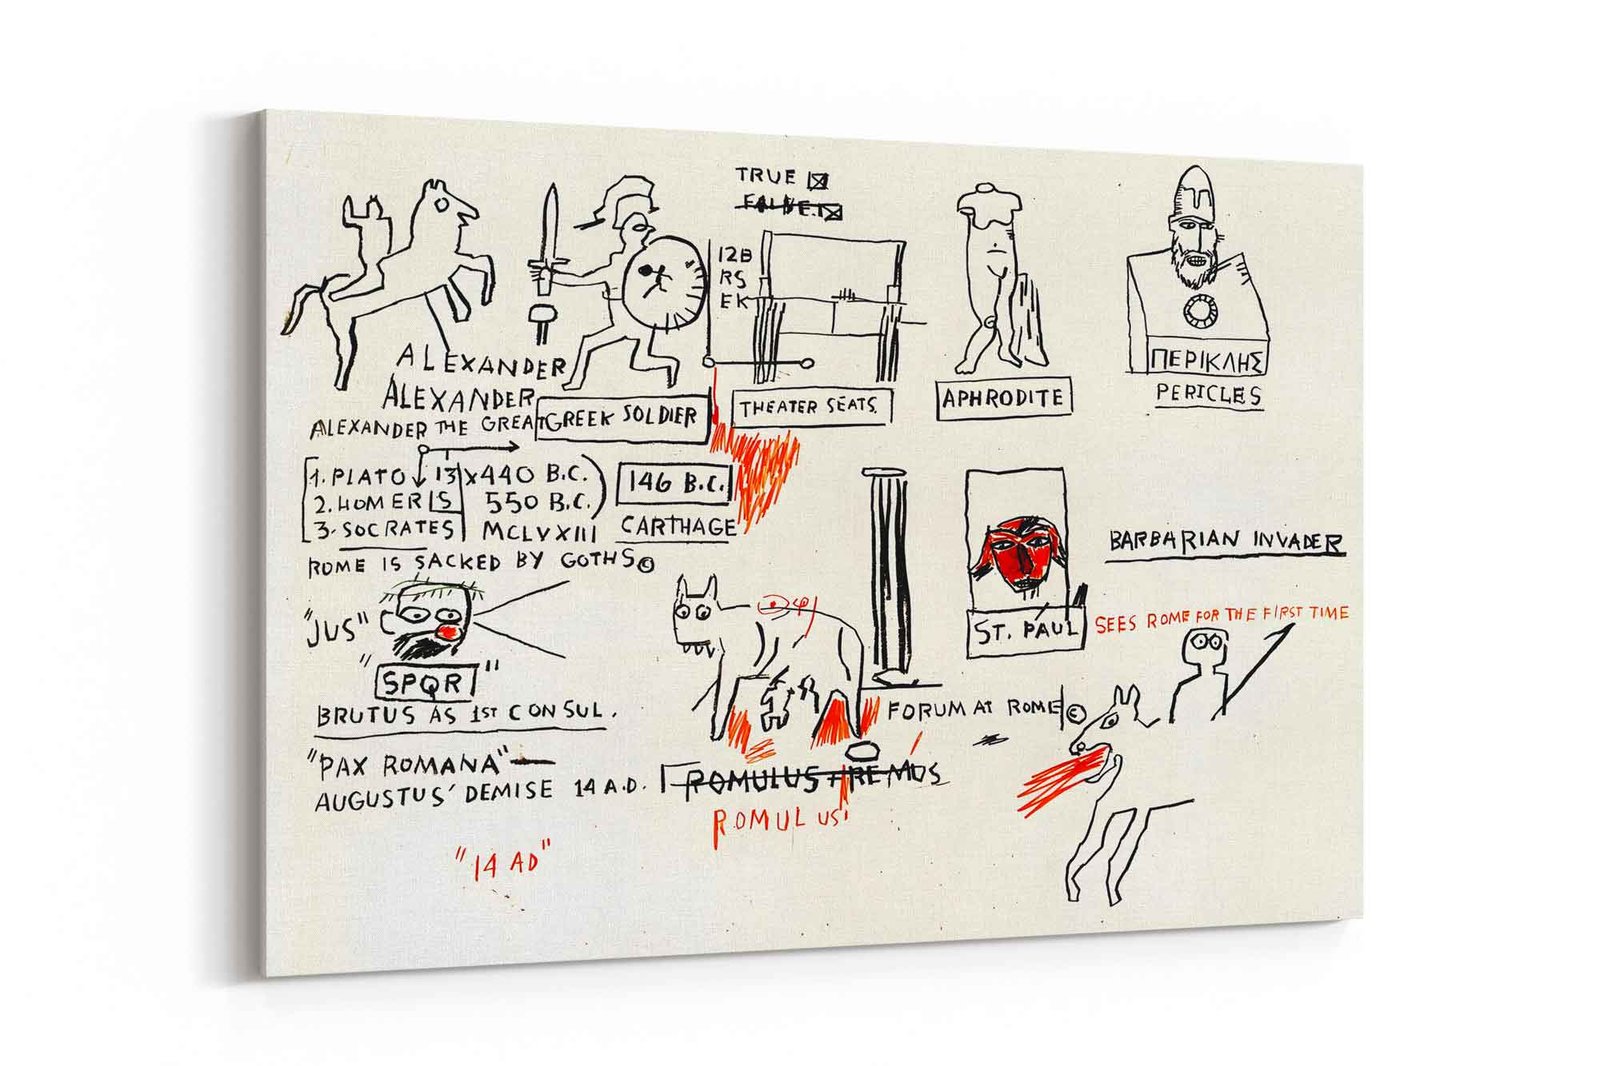 TRUE
FALSE
12B
RS
EK
ALEXANDER
ALEXANDER
ALEXANDER THE GREAT
GREEK SOLDIER
THEATER SEATS.
APHRODITE
ΠΕΡΙΚΛΗΣ
PERICLES
1. PLATO 13 x 440 B.C.
2. HOMER IS 550 B.C.
3. SOCRATES MCLVXIII
146 B.C.
CARTHAGE
ROME IS SACKED BY GOTHS©
"JUS"
"SPQR"
BRUTUS AS 1ST CONSUL.
"PAX ROMANA"—
AUGUSTUS' DEMISE 14 A.D.
"14 AD"
ROMULUS + REMUS
ROMULUS
FORUM AT ROME ©
ST. PAUL
BARBARIAN INVADER
SEES ROME FOR THE FIRST TIME